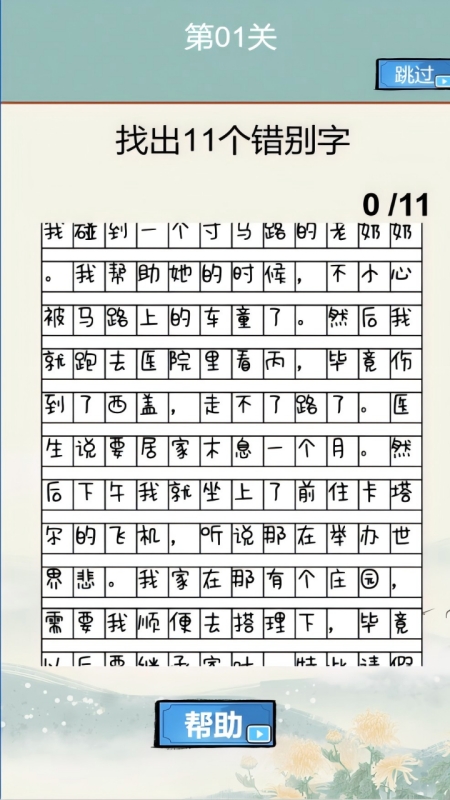 第01关
跳过
找出11个错别字
0 /11
我碰到一个寸马路的老奶奶
。我帮助她的时候，不小心
被马路上的车童了。然后我
就跑去医院里看丙，毕竟伤
到了西盖，走不了路了。医
生说要居家木息一个月。然
后下午我就坐上了前住卡塔
尔的飞机，听说那在举办世
界悲。我家在那有个庄园，
需要我顺便去搭理下，毕竟
以后要继子家叶，特比请假
帮助